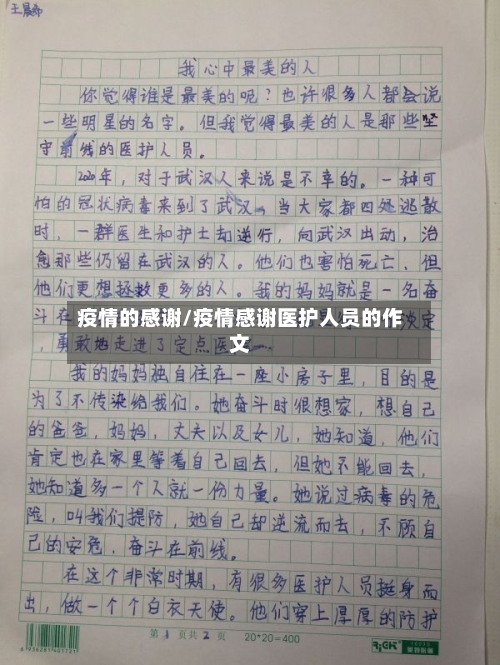 王晨希
我心中最美的人
你觉得谁是最美的呢？也许很多人都会说
一些明星的名字。但我觉得最美的人是那些坚
守前线的医护人员。
2020年，对于武汉人来说是不幸的。一种可
怕的冠状病毒来到了武汉。当大家都四处逃散
时，一群医生和护士却逆行，向武汉出动，治
愈那些仍留在武汉的人。他们也害怕死亡，但
他们更想拯救更多的人。我的妈妈就是一名奋
斗在
疫情的感谢/疫情感谢医护人员的作
文
勇敢地走进了定点医
我的妈妈独自住在一座小房子里，目的是
为了不传染给我们。她奋斗时很想家，想自己
的爸爸，妈妈，丈夫以及女儿，她知道，他们
肯定也在家里等着自己回去，但她不能回去，
她知道多一个人就一份力量。她说过病毒的危
险，叫我们提防，她自己却逆流而去，不顾自
己的安危，奋斗在前线。
在这个非常时期，有很多医护人员挺身而
出，做一个个白衣天使。他们穿上厚厚的防护
第1页共2页 20*20=400
6956281401721